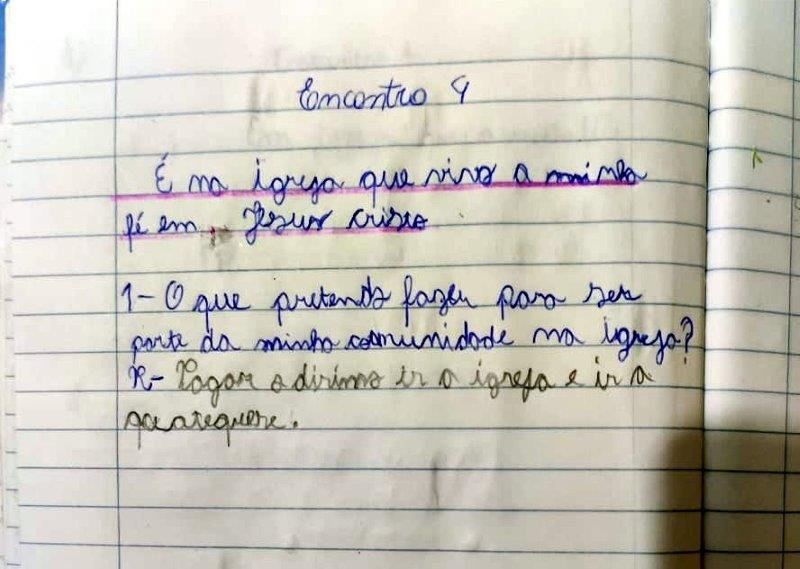 Encontro 9
É na igreja que vivo a minha
fé em Jesus cristo
1- O que pretendo fazer para ser
parte da minha comunidade na igreja?
R- Pagar o dirimo ir a igreja e ir a
qeatequese.